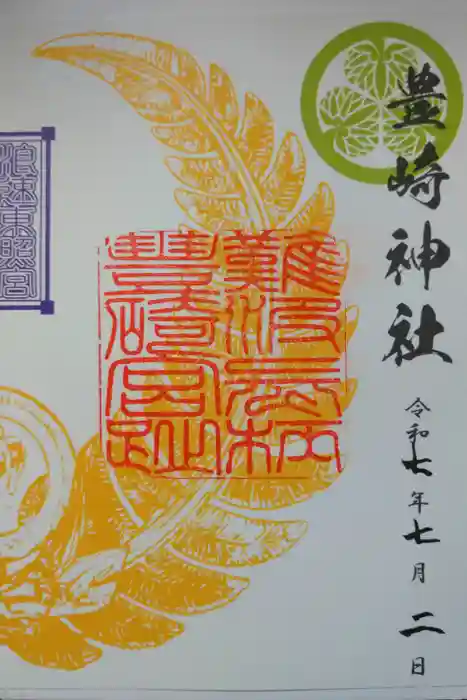 豊崎神社
令和七年七月二日
難波長柄
豐碕宮趾
浪速東照宮